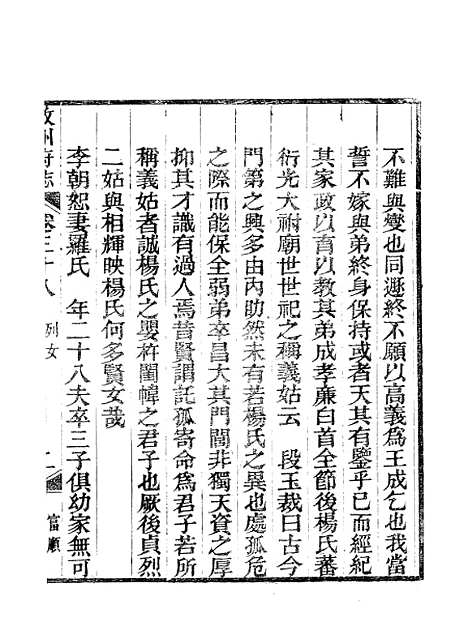 不難與燮也同遯終不願以高義爲王成乞也我當
誓不嫁與弟終身保持或者天其有鑒乎已而經紀
其家政以育以教其弟成孝廉白首全節後楊氏蕃
衍光大祔廟世世祀之稱義姑云　段玉裁曰古今
門第之興多由內助然未有若楊氏之異也處孤危
之際而能保全弱弟卒昌大其門閭非獨天資之厚
抑其才識有過人焉昔賢謂託孤寄命爲君子若所
稱義姑者誠楊氏之嬰杵閨幃之君子也厥後貞烈
二姑與相輝映楊氏何多賢女哉
李朝恕妻羅氏　年二十八夫卒三子俱幼家無可
敘州府志　卷三十八　列女　富順